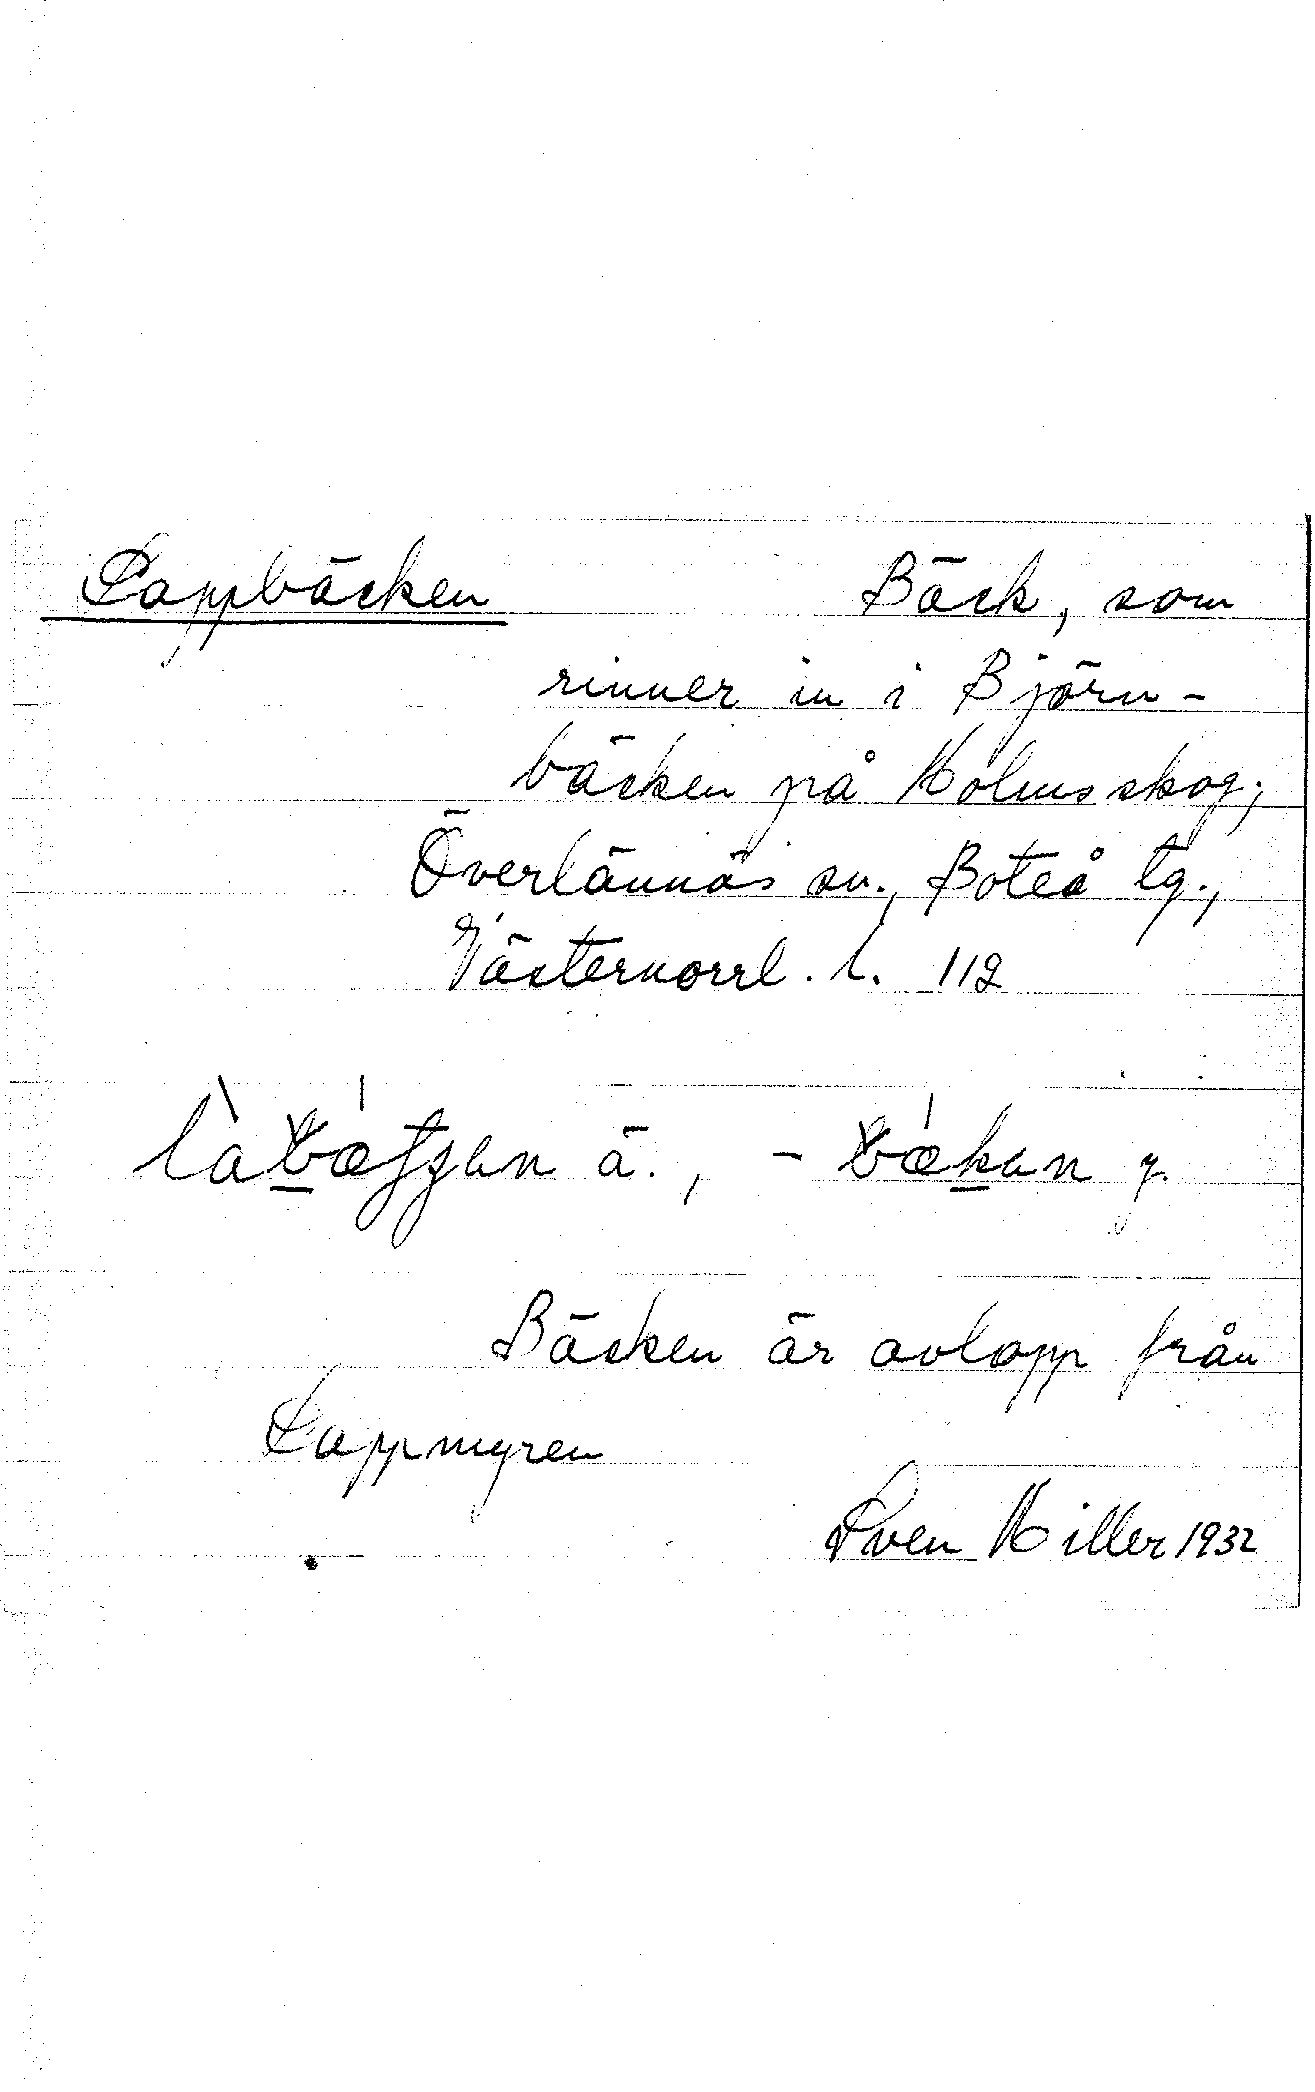 Lappbäcken Bäck, som
rinner in i Björn-
bäcken på Holms skog;
Överlännäs sn., Boteå tg.,
Västernorrl. l. 112
ä., - y.
Bäcken är avlopp från
Lappmyren
Sven Hiller 1932